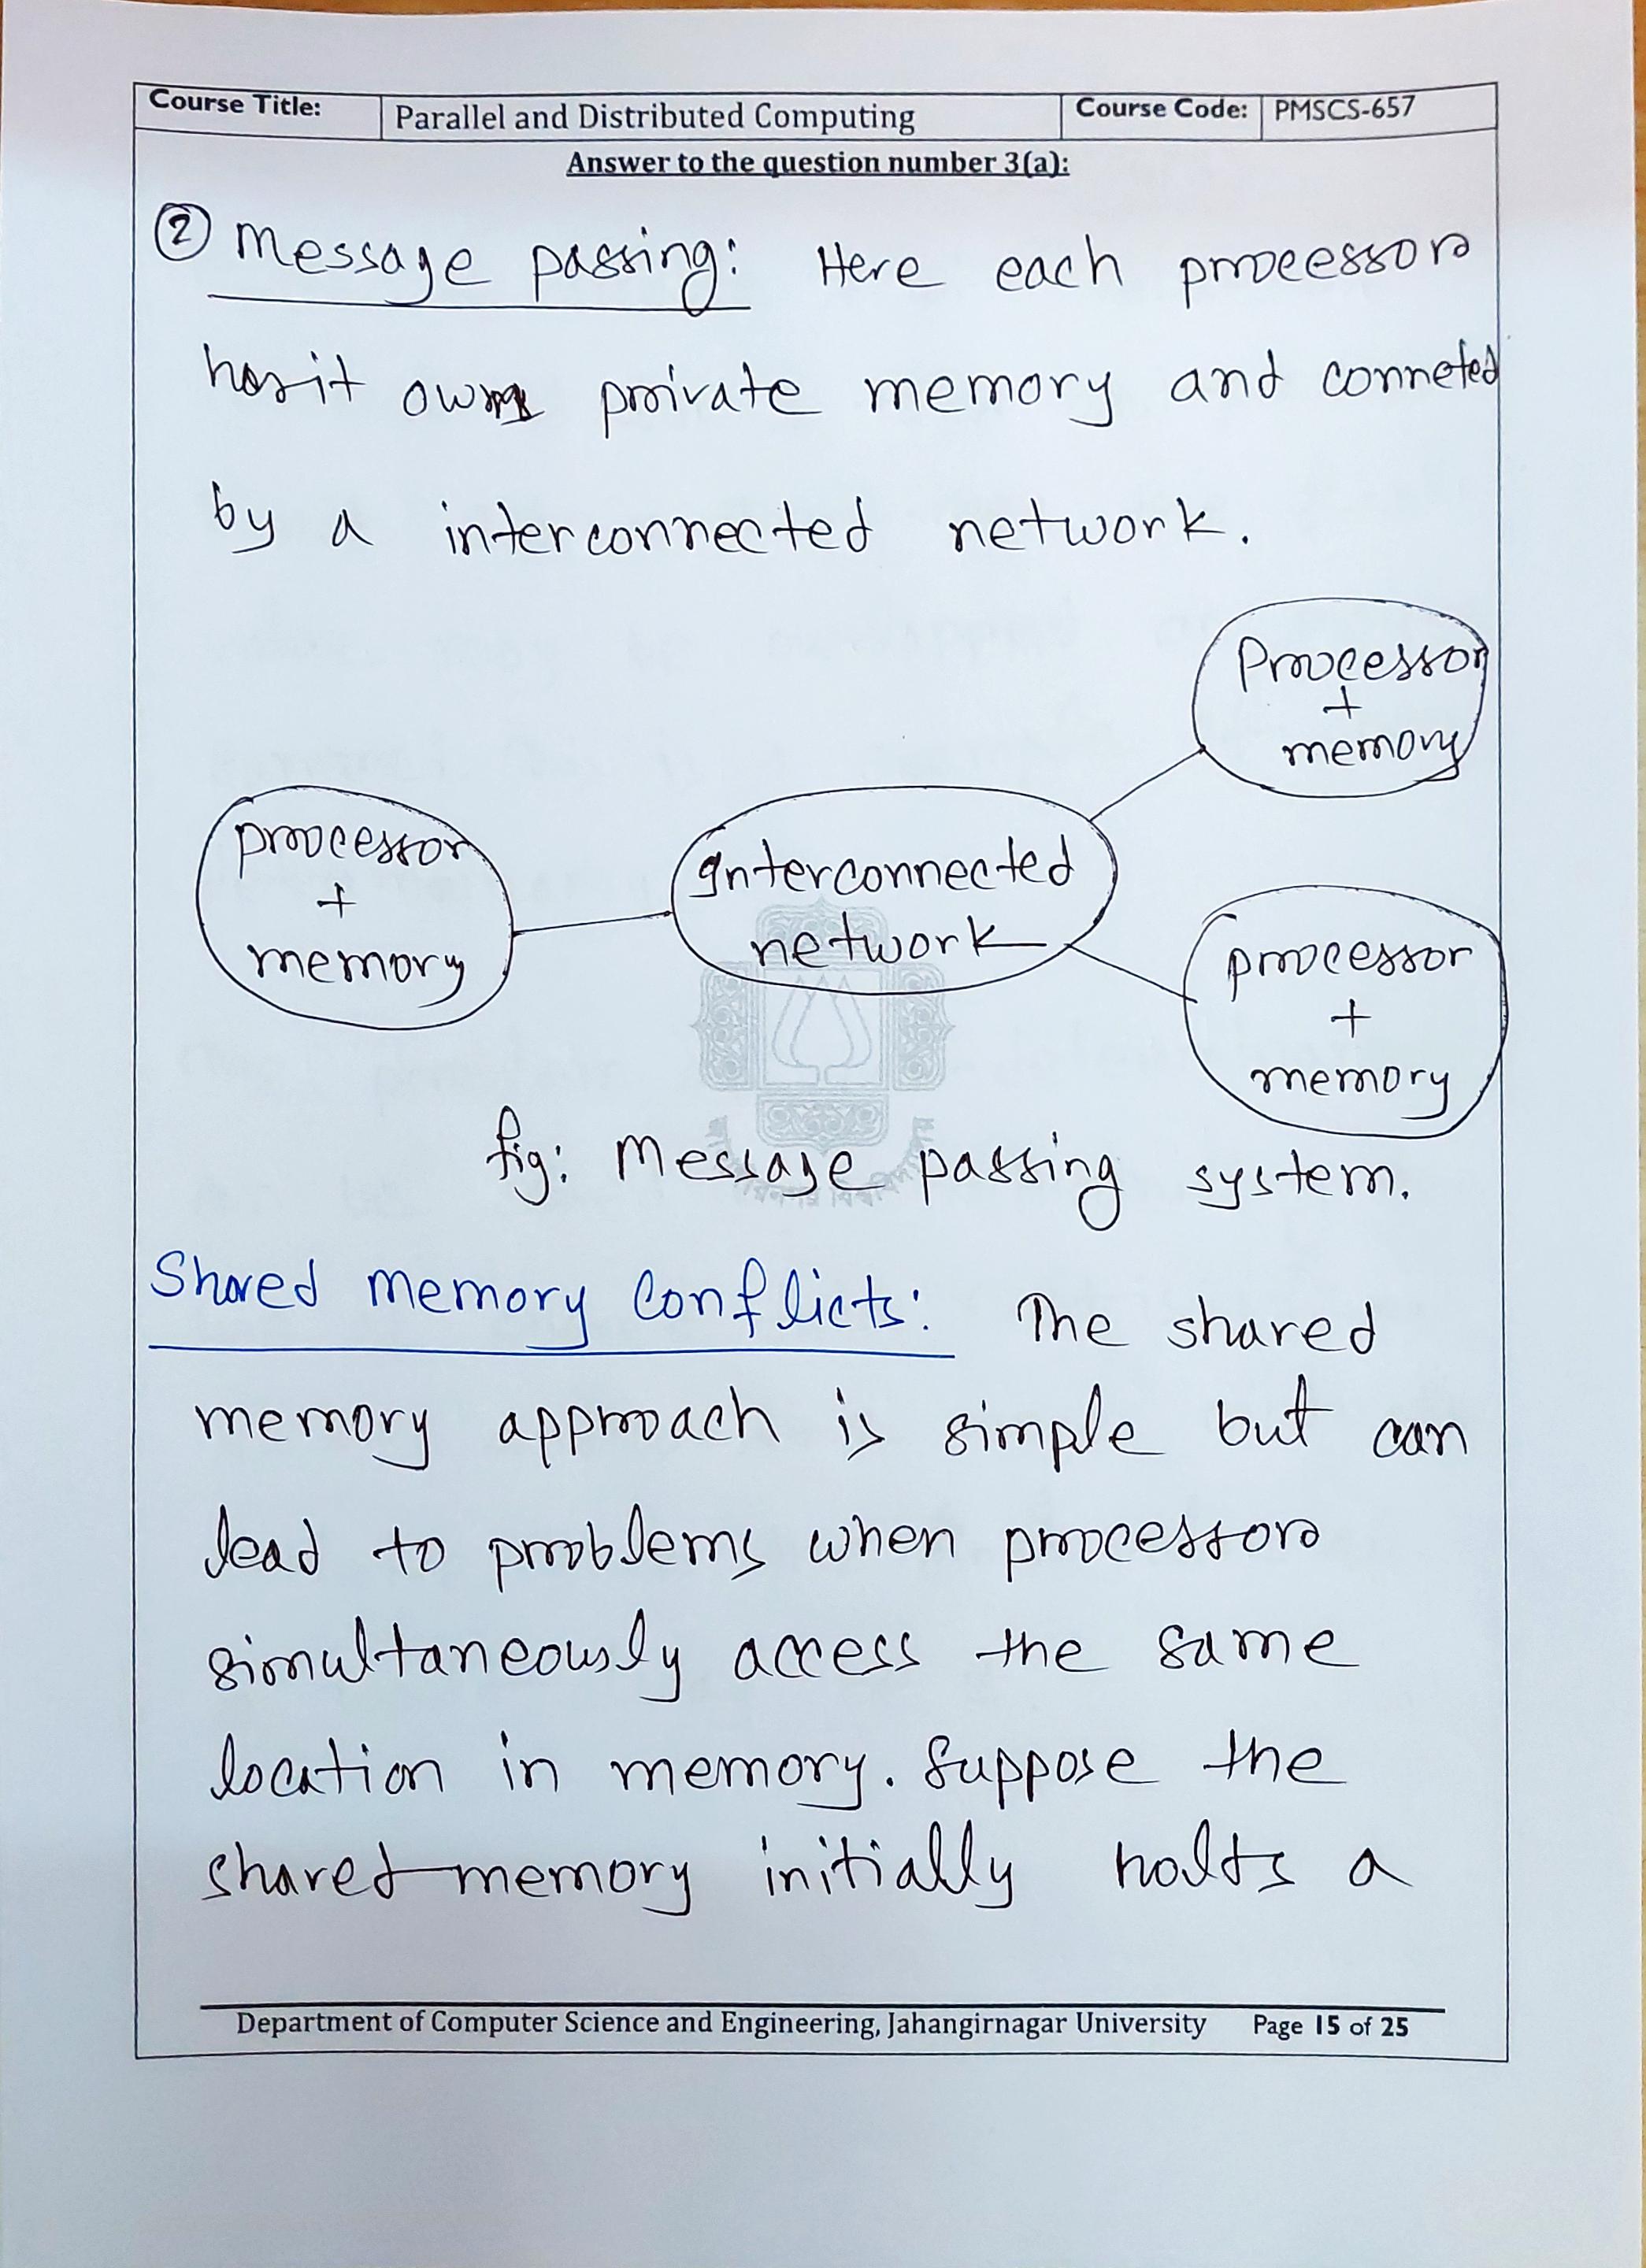 Course Title: Parallel and Distributed Computing Course Code: PMSCS-657
Answer to the question number 3(a):
② Message passing: Here each processor
has it own private memory and conneted
by a interconnected network.
Processor
+
memory
processor
+
memory
Interconnected
network
processor
+
memory
fig: Message passing system.
Shared memory Conflicts: The shared
memory approach is simple but can
lead to problems when processors
simultaneously access the same
location in memory. Suppose the
shared memory initially holds a
Department of Computer Science and Engineering, Jahangirnagar University Page 15 of 25